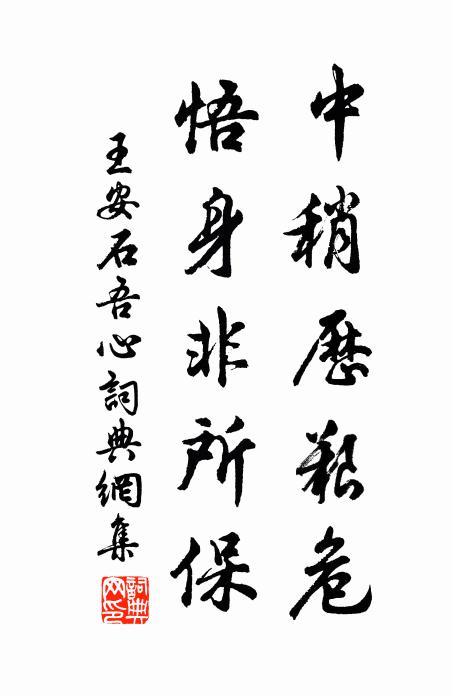 中稍歷艱危
悟身非所保
王安石吾心詞典網集
詞典網印